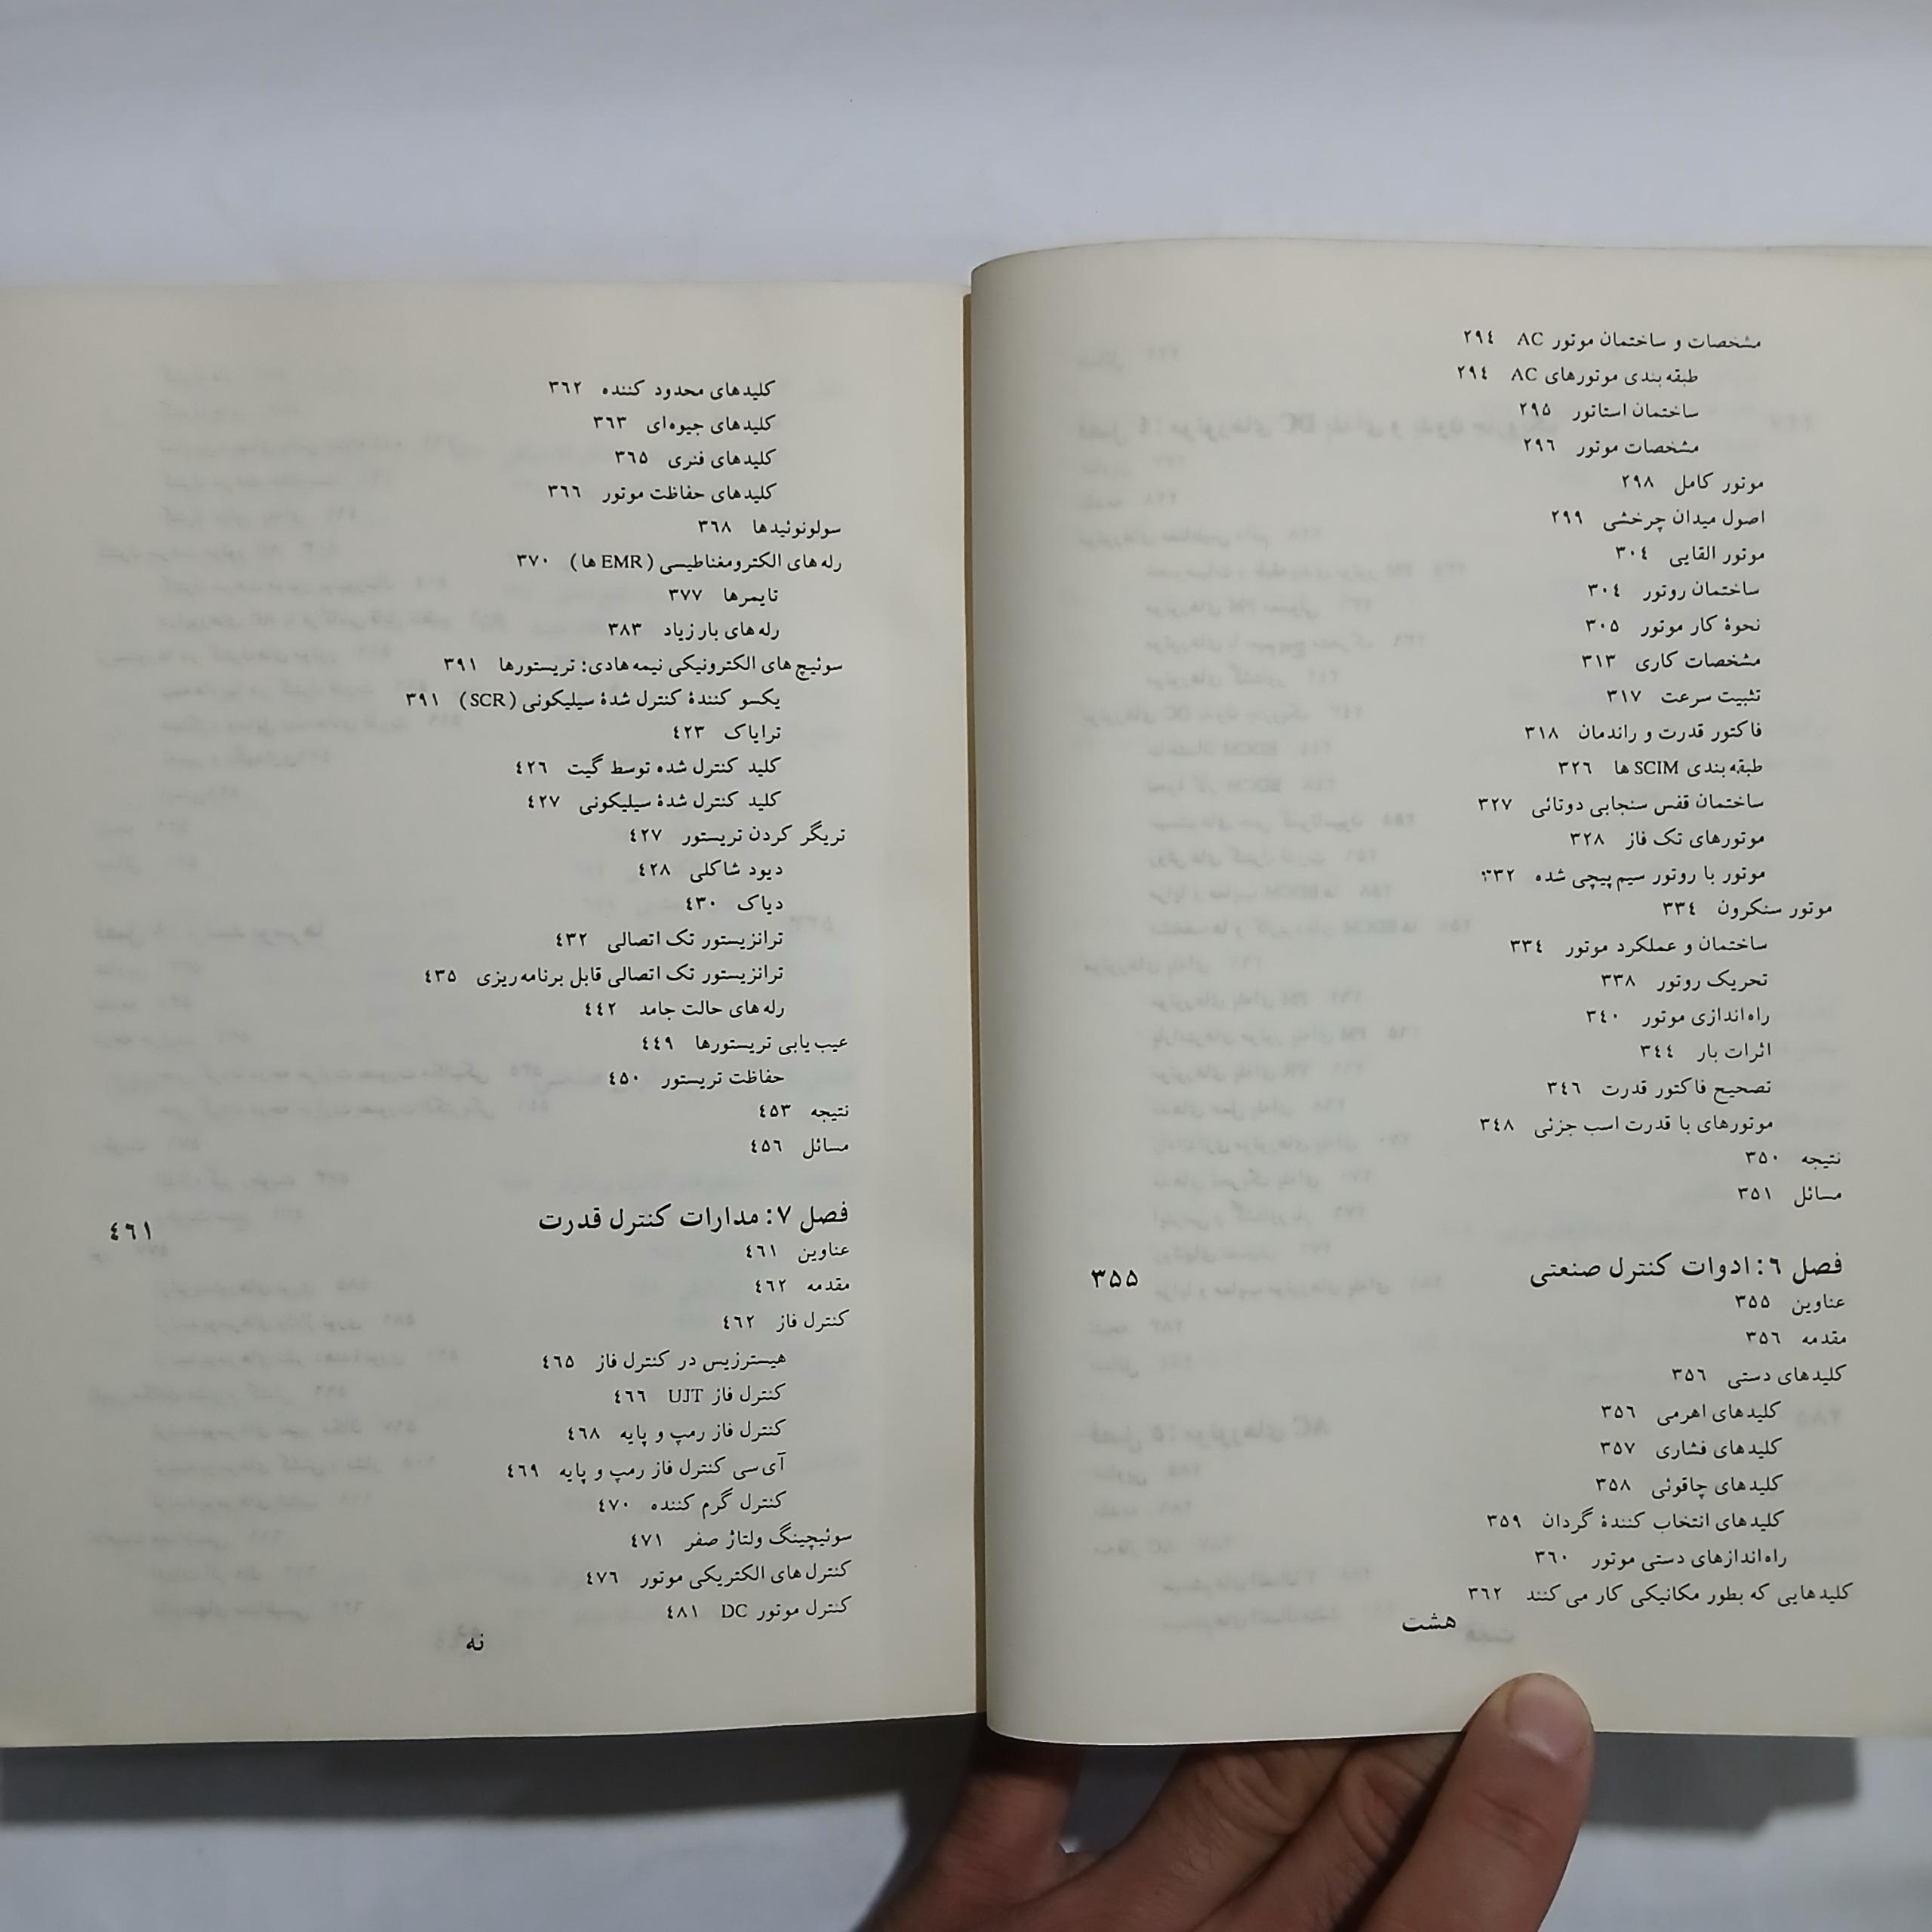 مشخصات و ساختمان موتور AC ۲۹٤
طبقه بندی موتورهای AC ۲۹٤
ساختمان استاتور ۲۹۵
مشخصات موتور ۲۹٦
موتور کامل ۲۹۸
اصول میدان چرخشی ۲۹۹
موتور القایی ۳۰٤
ساختمان روتور ۳۰٤
نحوهٔ کار موتور ۳۰۵
مشخصات کاری ۳۱۳
تثبیت سرعت ۳۱۷
فاکتور قدرت و راندمان ۳۱۸
طبقه بندی SCIM ها ۳۲٦
ساختمان قفس سنجابی دوتائی ۳۲۷
موتورهای تک فاز ۳۲۸
موتور با روتور سیم پیچی شده ۳۳۲
موتور سنکرون ۳۳٤
ساختمان و عملکرد موتور ۳۳٤
تحریک روتور ۳۳۸
راه اندازی موتور ۳٤۰
اثرات بار ۳٤٤
تصحیح فاکتور قدرت ۳٤٦
موتورهای با قدرت اسب جزئی ۳٤۸
نتیجه ۳۵۰
مسائل ۳۵۱
فصل ٦: ادوات کنترل صنعتی ۳۵۵
عناوین ۳۵۵
مقدمه ۳۵٦
کلیدهای دستی ۳۵٦
کلیدهای اهرمی ۳۵٦
کلیدهای فشاری ۳۵۷
کلیدهای چاقوئی ۳۵۸
کلیدهای انتخاب کنندهٔ گردان ۳۵۹
راه اندازهای دستی موتور ۳٦۰
کلیدهایی که بطور مکانیکی کار می کنند ۳٦۲
هشت
کلیدهای محدود کننده ۳٦۲
کلیدهای جیوه ای ۳٦۳
کلیدهای فنری ۳٦۵
کلیدهای حفاظت موتور ۳٦٦
سولونوئیدها ۳٦۸
رله های الکترومغناطیسی (EMR ها) ۳۷۰
تایمرها ۳۷۷
رله های بار زیاد ۳۸۳
سوئیچ های الکترونیکی نیمه هادی: تریستورها ۳۹۱
یکسو کنندهٔ کنترل شدهٔ سیلیکونی (SCR) ۳۹۱
ترایاک ٤۲۳
کلید کنترل شده توسط گیت ٤۲٦
کلید کنترل شدهٔ سیلیکونی ٤۲۷
تریگر کردن تریستور ٤۲۷
دیود شاکلی ٤۲۸
دیاک ٤۳۰
ترانزیستور تک اتصالی ٤۳۲
ترانزیستور تک اتصالی قابل برنامه ریزی ٤۳۵
رله های حالت جامد ٤٤۲
عیب یابی تریستورها ٤٤۹
حفاظت تریستور ٤۵۰
نتیجه ٤۵۳
مسائل ٤۵٦
فصل ۷: مدارات کنترل قدرت ٤٦۱
عناوین ٤٦۱
مقدمه ٤٦۲
کنترل فاز ٤٦۲
هیسترزیس در کنترل فاز ٤٦۵
کنترل فاز UJT ٤٦٦
کنترل فاز رمپ و پایه ٤٦۸
آی سی کنترل فاز رمپ و پایه ٤٦۹
کنترل گرم کننده ٤۷۰
سوئیچینگ ولتاژ صفر ٤۷۱
کنترل های الکتریکی موتور ٤۷٦
کنترل موتور DC ٤۸۱
نه